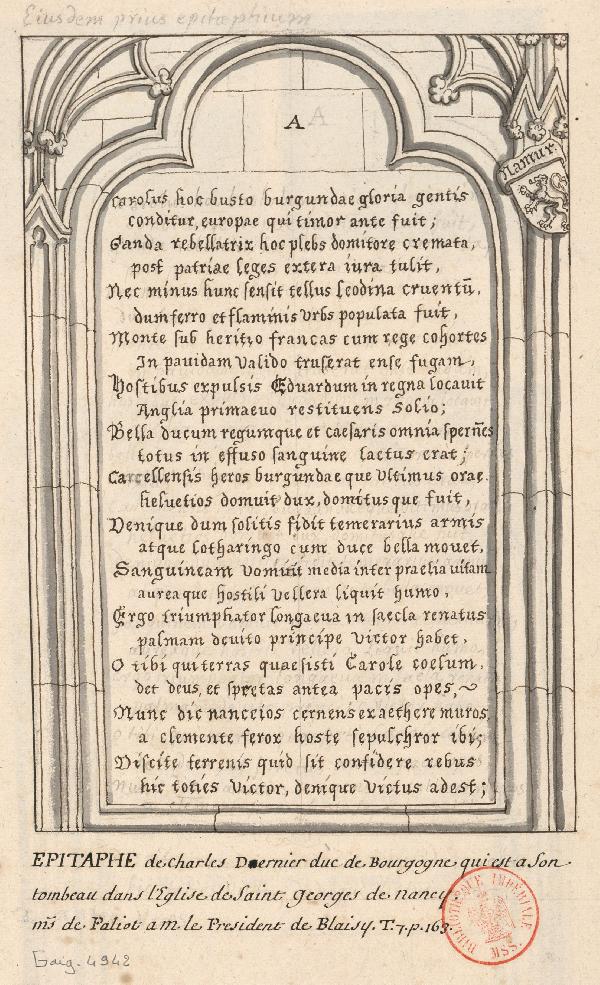 Eiusdem prius epitaphium
A
Namur
Carolus hoc busto burgundae gloria gentis
conditur, europae qui timor ante fuit;
Ganda rebellatrix hoc plebs domitore cremata,
post patriae leges extera iura tulit,
Nec minus hunc sensit tellus leodina cruentū,
dum ferro et flaminis vrbs populata fuit,
Monte sub heritio francas cum rege cohortes
In pauidam valido truserat ense fugam,
Hostibus expulsis Eduardum in regna locauit
Anglia primaeuo restituens solio;
Bella ducum regumque et caesaris omnia spern̄es
totus in effuso sanguine laetus erat;
Carcellensis heros burgundae que vltimus orae
helvetios domuit dux, domitusque fuit,
Denique dum solitis fidit temerarius armis
atque lotharingo cum duce bella mouet,
Sanguineam vomuit media inter praelia vitam
aurea que hostili vellera liquit humo,
Ergo triumphator longaeua in saecla renatus
palmam deuito principe victor habet,
O tibi qui terras quaesisti Carole coelum,
det deus, et spretas antea pacis opes,
Nunc dic nanceios cernens ex aethere muros,
a clemente ferox hoste sepulchror ibi;
Discite terrenis quid sit confidere rebus
hic toties victor, denique victus adest;
EPITAPHE de Charles Dernier duc de Bourgogne qui est a son
tombeau dans l'Eglise de Saint Georges de Nancy
ms de Paliot a m. le President de Blaisy. T. 7. p. 163.
BIBLIOTHÈQUE IMPÉRIALE
MSS.
Gaig. 4942